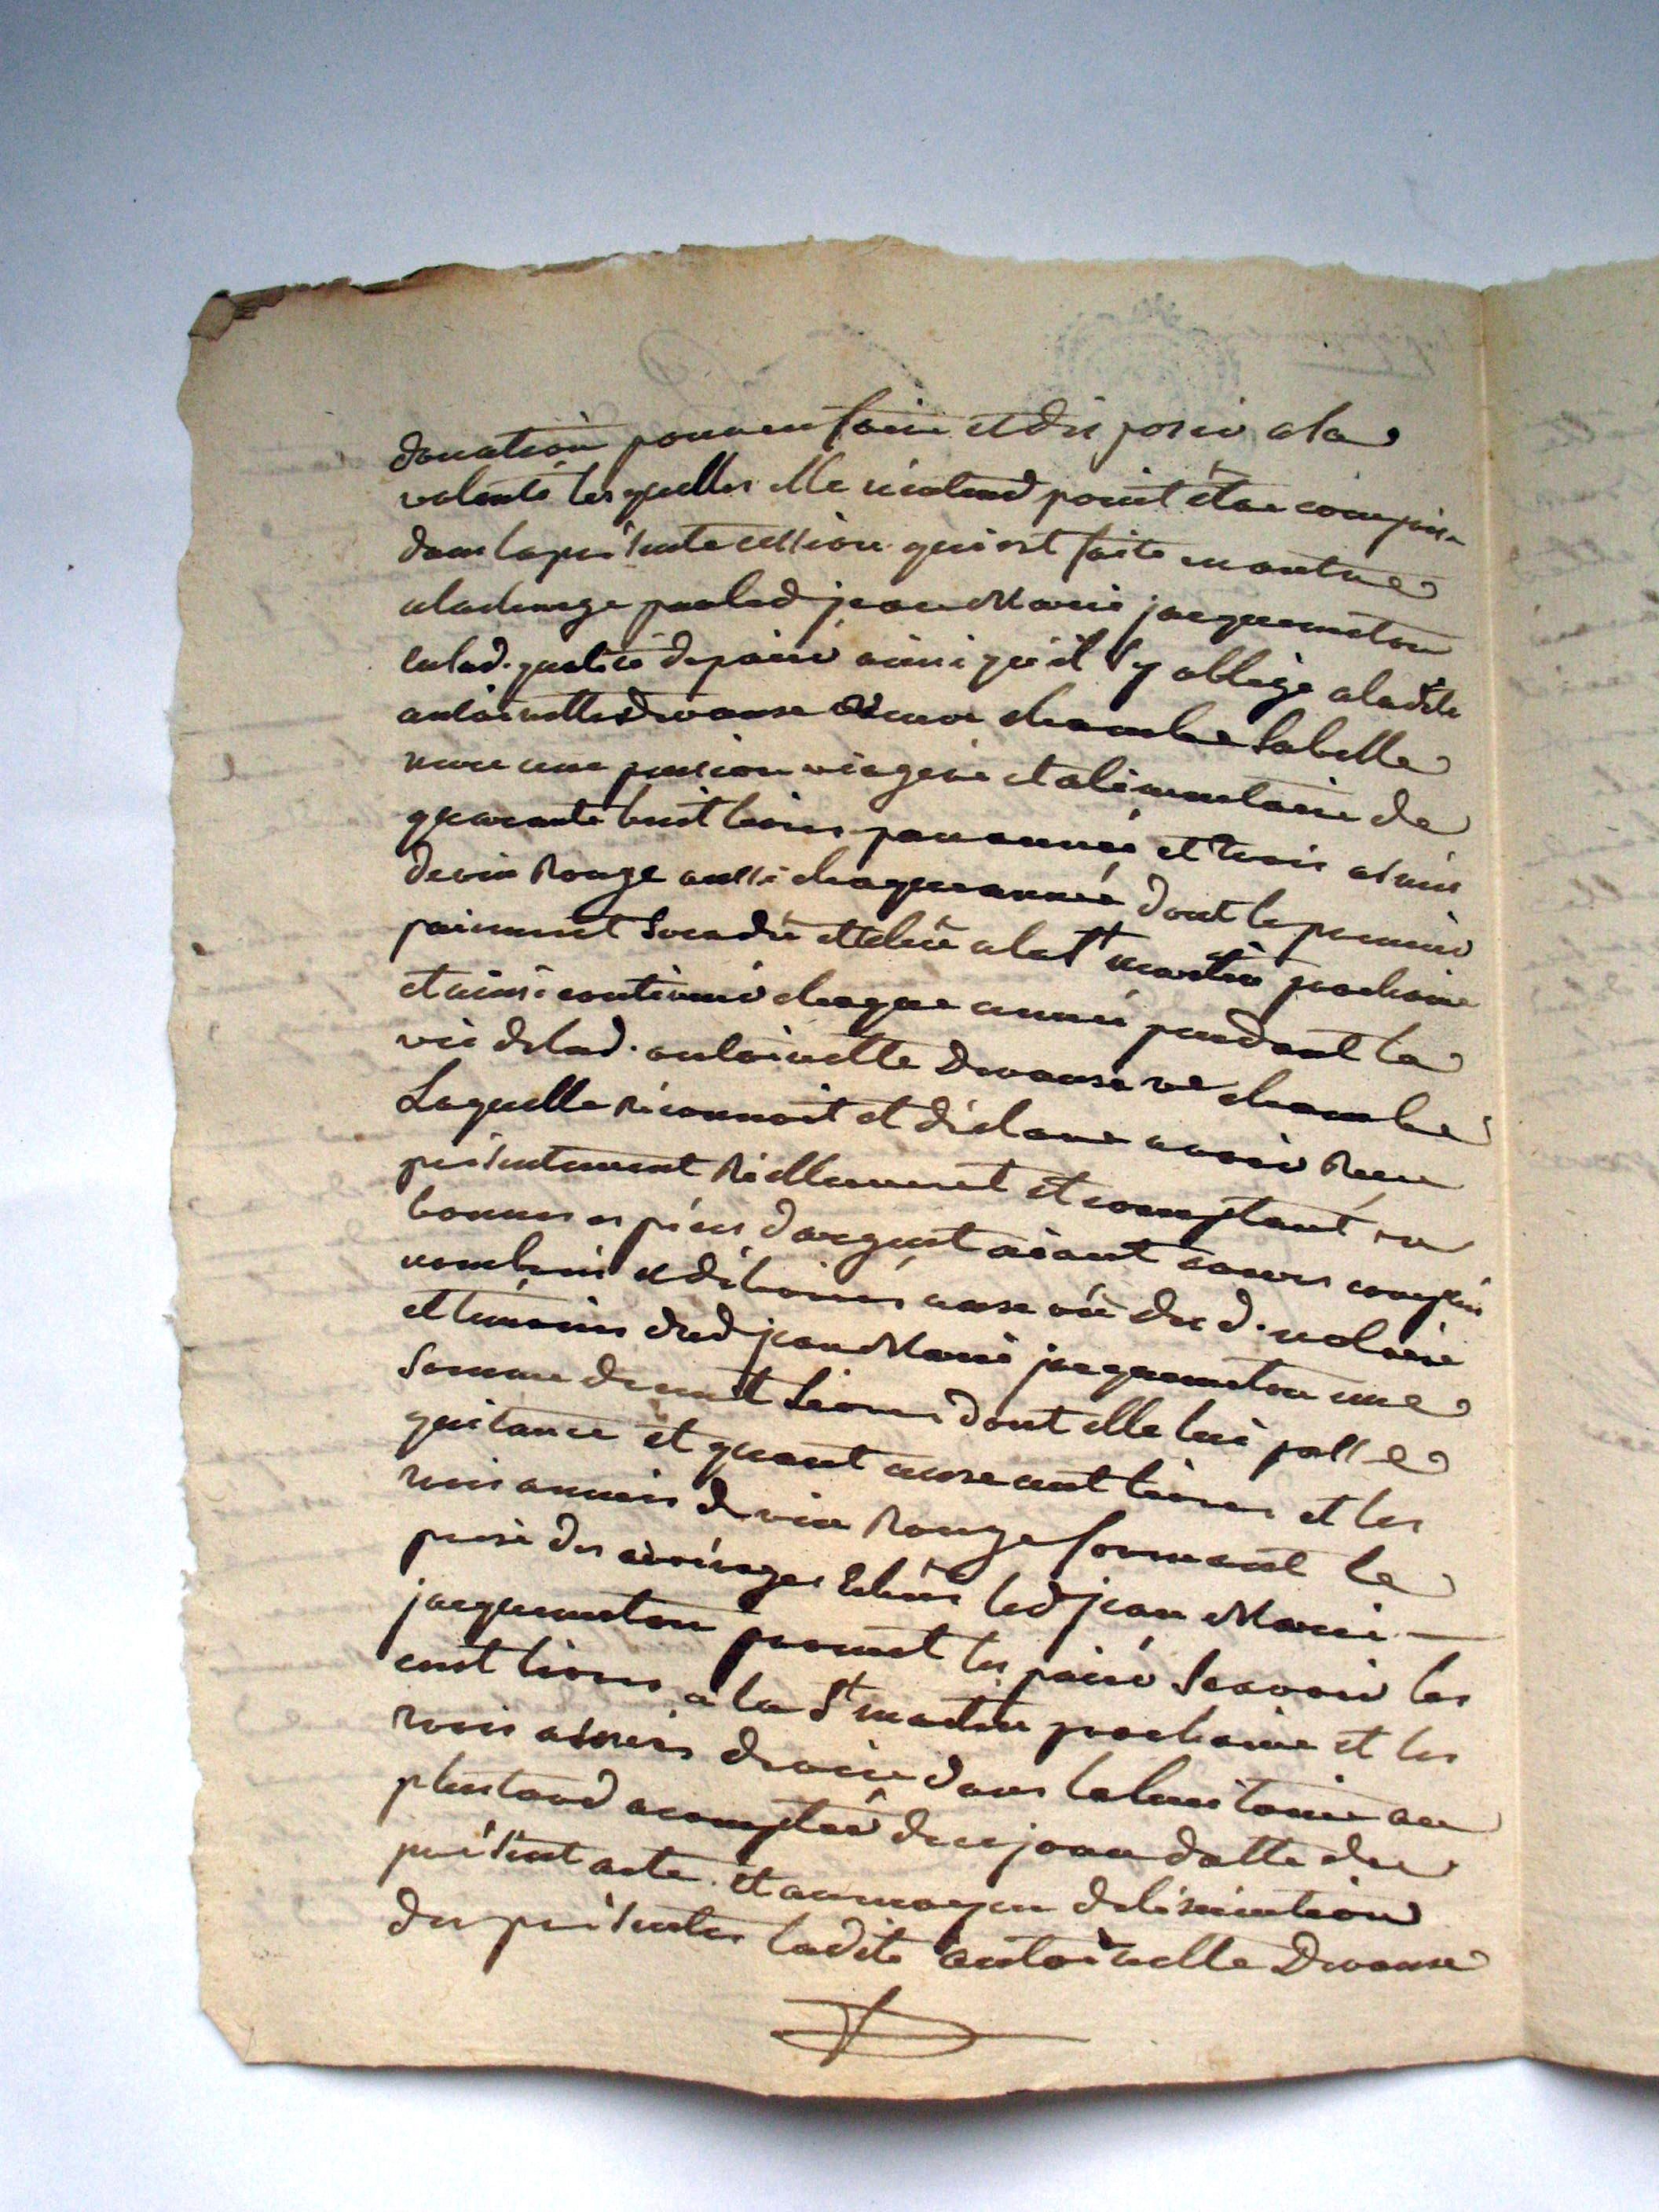 donation pour en faire et disposer a la
volonté lesquelles elle n'entend point être comprise
dans la présente cession qui est faite en outre
a la charge par led jean Marie jacquemeton
en lad. qualité de paier ainsi qu'il s'y oblige a ladite
antoinette veuve chambe sa belle
mere une pension viagere et alimentaire de
quarante huit livres par année et trois anées
de vin Rouge aussi chaque année dont le premier
paiement sera dû et échû a la St martin prochaine
et ainsi continué chaque année pendant la
vie de lad. antoinette ve chambe
Laquelle reconnoit et déclare avoir Reçu
présentement réellement et comptant en
bonnes espéces d'argent aiant cours comptées
nombrées et délivrées a la vûe du d. notaire
et témoins dud jean Marie jacquemeton une
somme de cent Livres dont elle lui passe
quitance et quant aux cent livres et les
trois anées de vin Rouge formant le
prix des arrérages échûs led jean Marie
jacquemeton promet les paier scavoir les
cent livres a la St martin prochaine et les
trois anées de vin dans la huitaine au
plus tard a compter de ce jour datte du
présent acte. et au moyen de l'exécution
des présentes ladite antoinette